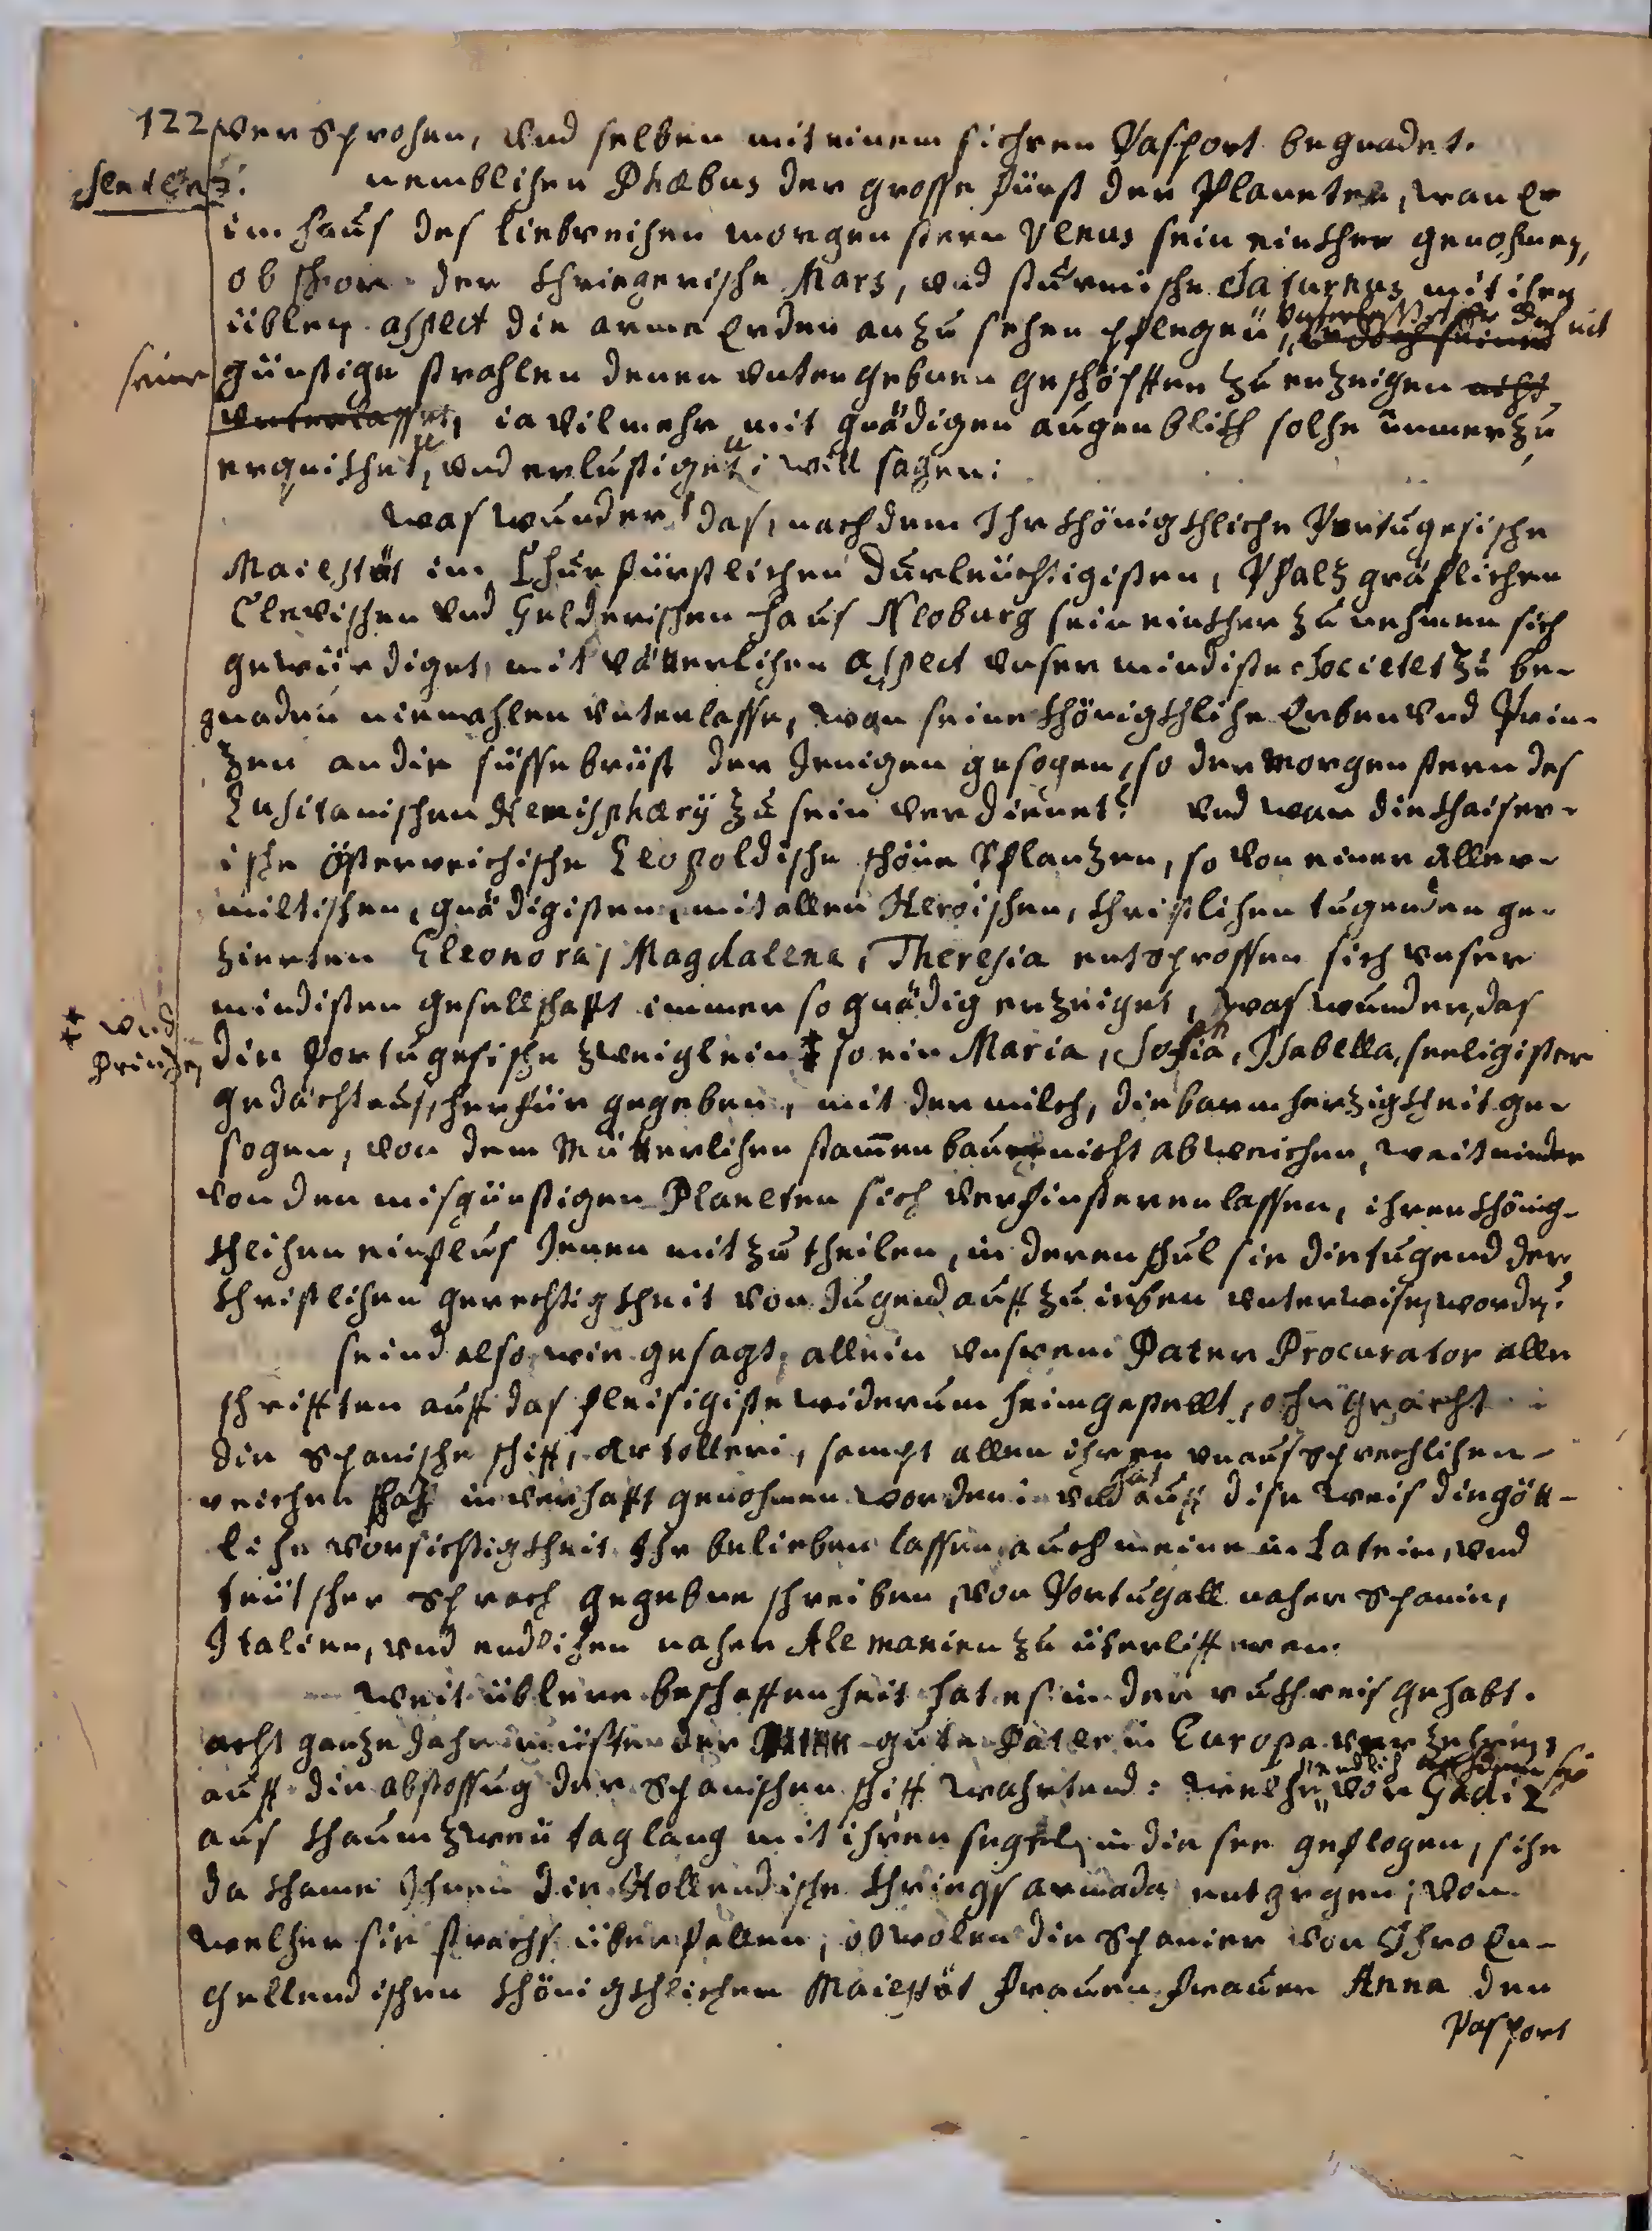 122 versprohen, vnd selben mit einem sichren Pasport begnadet.
nemblichen Phæbus der grosse fürst der Planeten, wan Er
im haus des liebreichen morgenstern Venus sein einkher genohmen,
ob schon der khriegerische Mars, und stürmische Saturnus mit ihren
üblen aspect die arme Erden anzu sehen pflegen, unterlasset er doch nit
seine günstige strahlen denen untergebnen geschöpffen zu erzeigen nicht
unterlasset, ia vilmehr mit gnädigen augenblikh solche immerzu
erquikhet, und erlustiget; will sagen:
was wunder! das, nachdem Ihr khönigkhliche Portugesische
Maiestät im Churfürstlichen durleüchtigisten, Pfalzgräflichen
Clevischen vnd Gelderischen haus Neoburg sein einkher zu nehmen sich
gewürdiget, mit vätterlichen aspect unser mindiste Societet zu be-
gnaden niemahlen unterlasse, wan seine khönigkhliche Erben und Prin-
zen an die süsse brüst der Jenigen gesogen, so der Morgenstern des
Lusitanischen Hemisphærÿ zu sein verdienet? vnd wan die khaiser-
ische österreichische Leopoldische schöne Pflanzen, so von einer aller-
miltischen, gnädigisten, mit allen Heroischen, khristlichen tugenden ge-
zierten Eleonora, Magdalena, Theresia entsprossen sich unser
mindisten gesellschafft immer so gnädig erzeiget, was wunder, das
** vnd Prinzen
die Portugesische zweiglein ‡ so ein Maria, Sophia, Isabella, seeligister
gedächtnus, herfür gegeben, mit der milch, die barmherzigkheit ge-
sogen, von dem Mütterlichen stammenbaum nicht abweichen, weit minder
von den misgünstigen Planeten sich verfinsteren lassen, ihren khönig-
khlichen einflus Jenen mitzutheilen, in deren schul sie die tugend der
khristlichen gerechtigkheit von Jugend auff zu üben unterwisen worden?
seind also, wie gesagt, allein unserem Pater Procurator alle
schrifften auff das fleisigiste widerum heimgestellt, ohngeacht
die Spanische schiff, Artolleri, sampt allen ihren unaussprechlichen-
reichen schaz in verhafft genohmen worden: und hat auff dise weis die gött-
liche vorsichtigkheit Ihr belieben lassen, auch meine in Latein, und
teütscher Sprach gegebne schreiben, von Portugall naher Spanien,
Italien, vnd endlichen naher Alemanien zu überlifferen.
weit üblere beschaffenheit hat es in der rukhreis gehabt.
acht ganze Jahr müste der gute Pater in Europa verzehren,
auff die abstossug der Spanischen schiff wahrtend: welche, endlich von Gadiz
aus khaum zwen tag lang mit ihren segeln in die see geflogen, sihe
da khame Ihnen die Hollendische khriegs armada entgegen; von
welcher sie strachs überfallen, obwolen die Spanier von Ihro En-
gellendischen khönigkhlichen Maiestät frauen frauen Anna den
Pasport